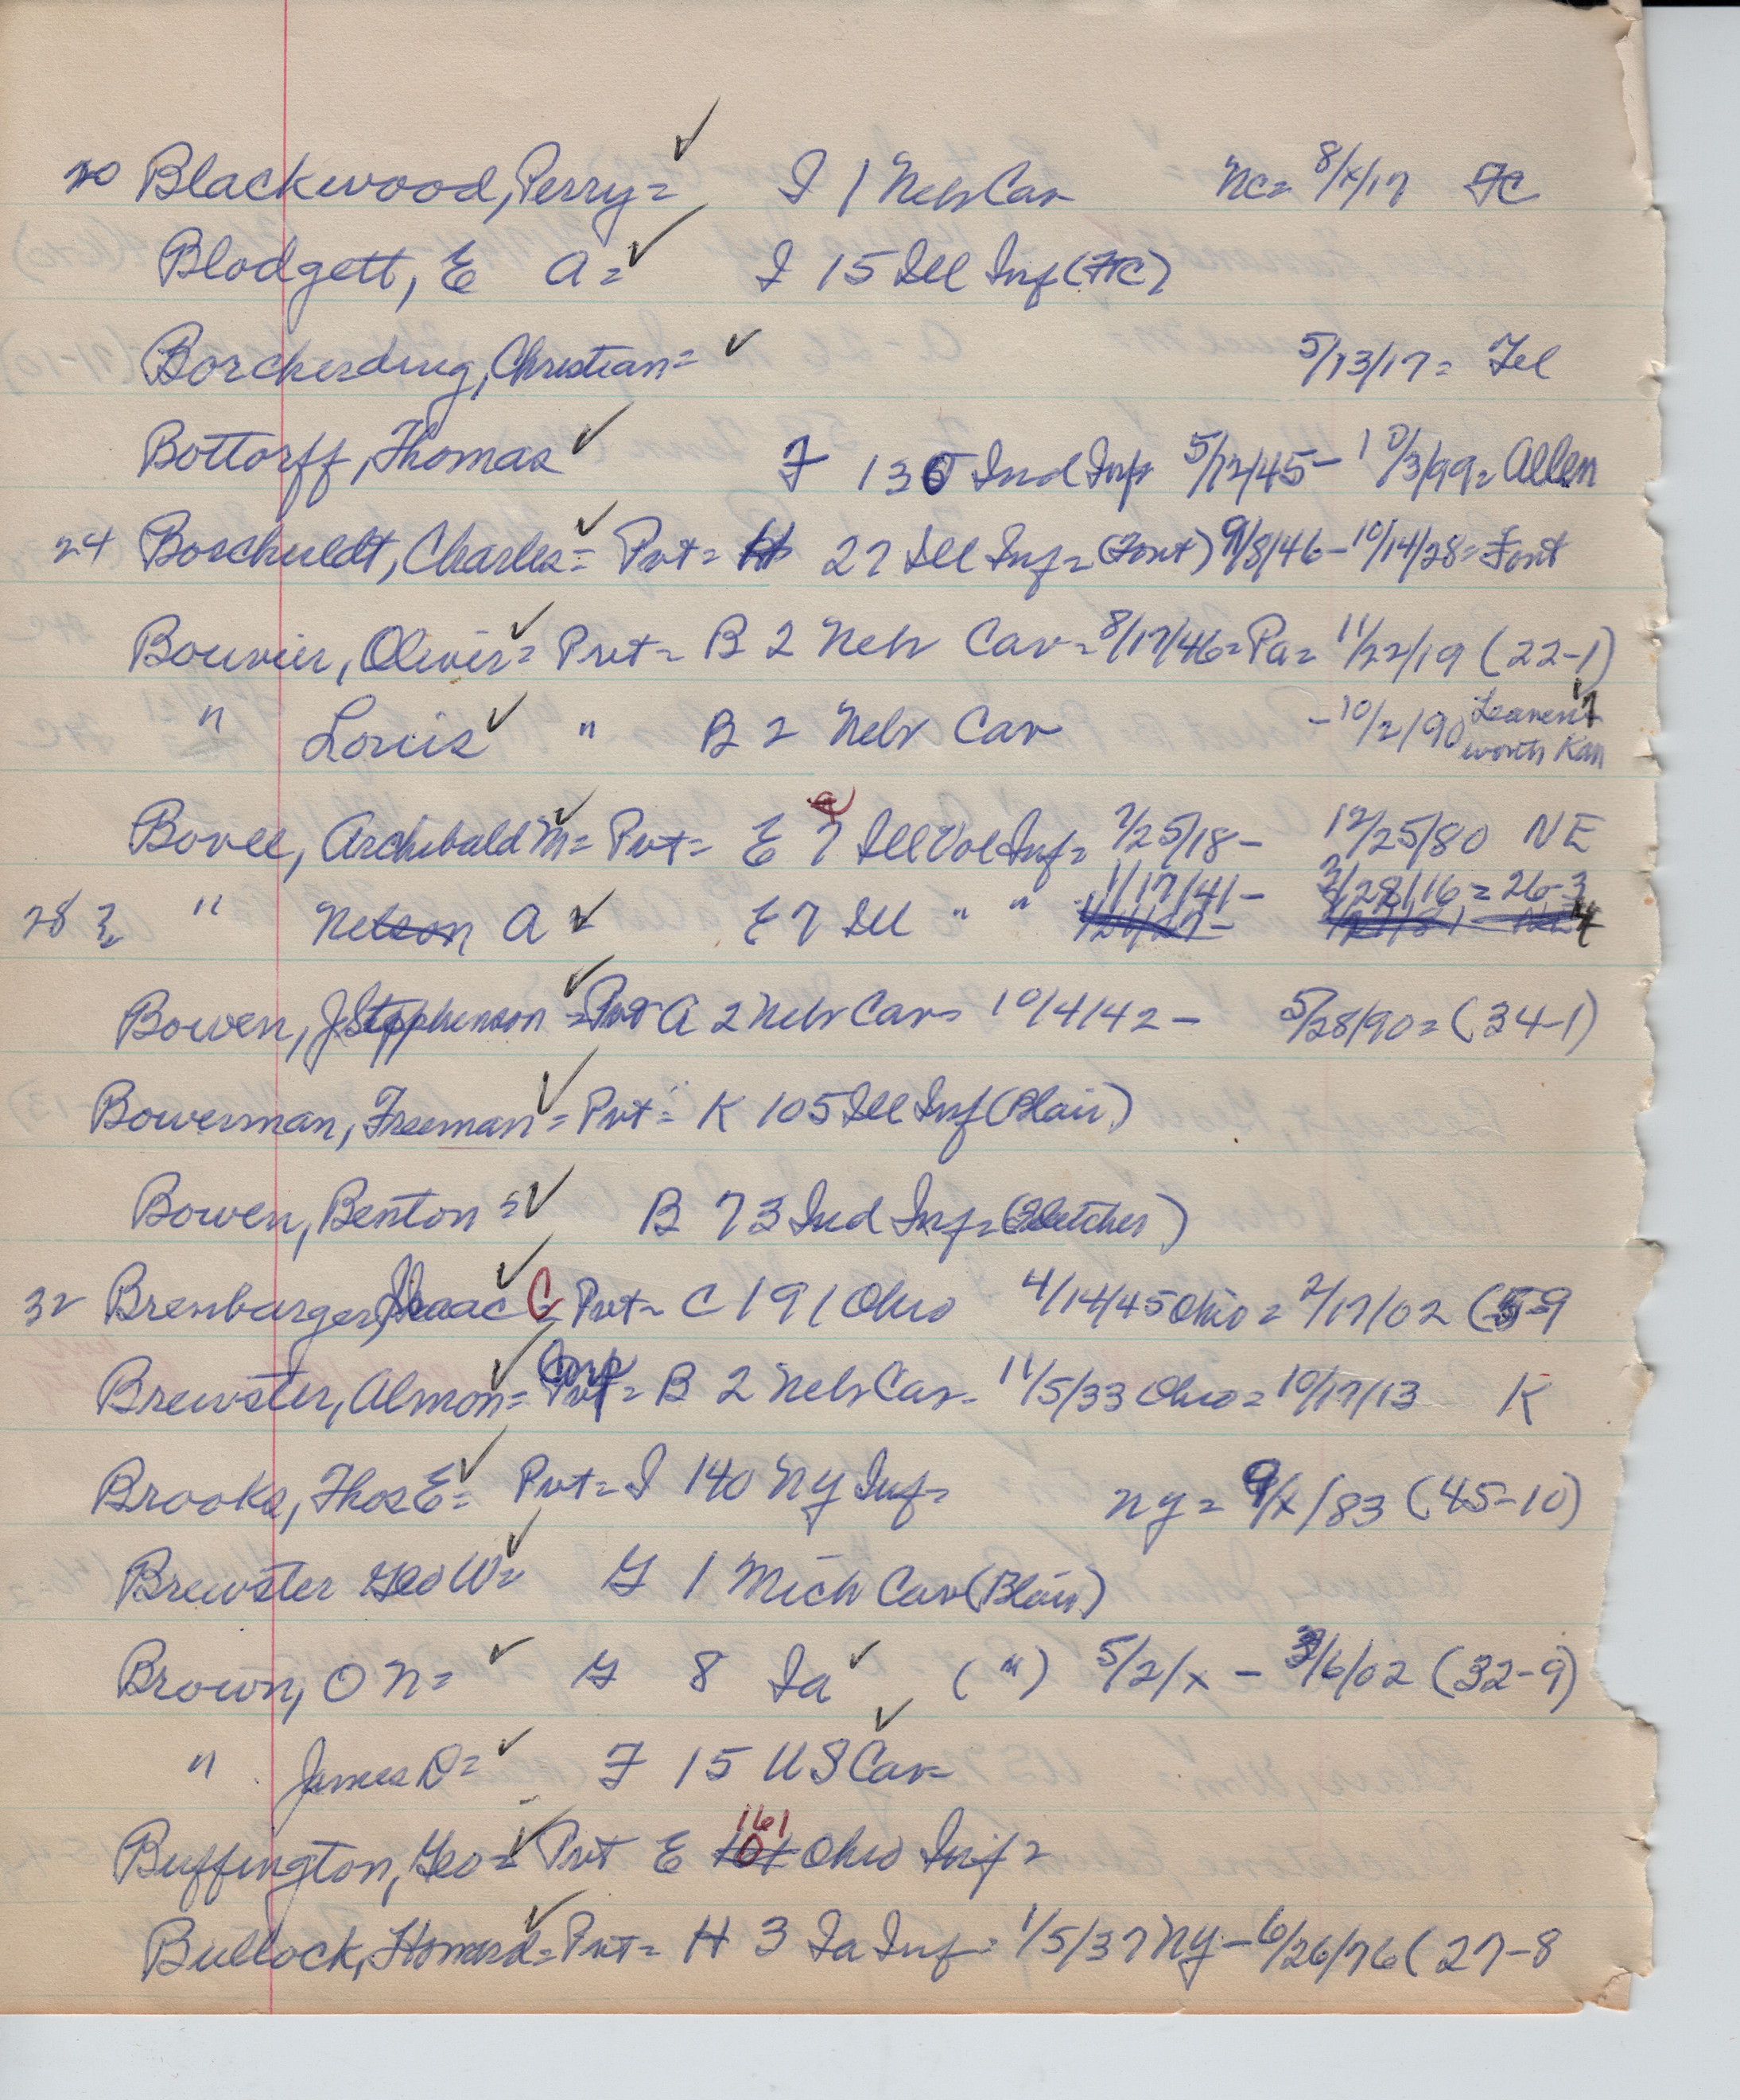 20 Blackwood, Perry= ✓ I 1 Nebr Cav NC= 8/x/17 FC
Blodgett, E A= ✓ I 15 Ill Inf (FC)
Borcherding, Christian= ✓ 5/13/17= Tel
Bottorff, Thomas ✓ F 136 Ind Inf 5/12/45- 10/3/99= Allen
24 Boschuldt, Charles= ✓ Pvt= H 27 Ill Inf= (Font) 9/8/46-10/14/28= Font
Bouvier, Oliver= ✓ Pvt= B 2 Nebr Cav= 8/17/46= Pa= 11/22/19 (22-1)
" Louis ✓ " B 2 Nebr Cav -10/2/90 Leaven
worth Kan
Bovee, Archibald M= ✓ Pvt= E 7 Ill Vol Inf= 7/25/18- 12/25/80 NE
28 " Nelson A ✓ E 7 Ill " " 1/17/41- 3/28/16= 26-3
Bowen, J Stephenson ✓ =Pvt A 2 Nebr Cav= 10/4/42- 5/28/90= (34-1)
Bowerman, Freeman ✓ = Pvt= K 105 Ill Inf (Blair)
Bowen, Benton = ✓ B 73 Ind Inf= (Fletcher)
32 Brenbarger, Isaac C ✓ = Pvt= C 191 Ohio 4/14/45 Ohio= 2/17/02 (5-9
Brewster, Almon= ✓ Corp = B 2 Nebr Cav= 11/5/33 Ohio= 10/17/13 K
Brooks, Thos E= ✓ Pvt= I 140 NY Inf= NY= 9/x/83 (45-10)
Brewster Geo W= ✓ G 1 Mich Cav (Blair)
Brown, O N= ✓ G 8 Ia ✓ (") 5/2/x - 3/6/02 (32-9)
" James D= ✓ F 15 US Cav= ✓
Buffington, Geo= ✓ Pvt E 161 Ohio Inf=
Bullock, Howard= ✓ Pvt= H 3 Ia Inf= 1/5/37 NY-6/26/76 (27-8